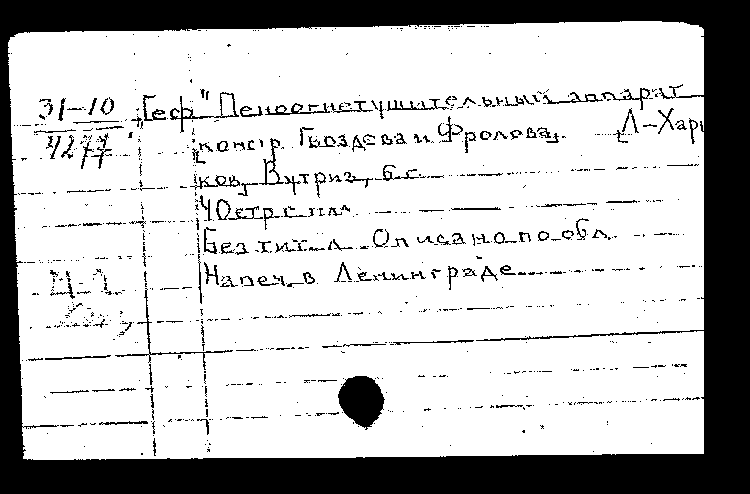 31-10
4277
„Геф" Пеноогнетушительный аппарат
[констр. Гвоздева и Фролова]. [Л-Харь
ков], Вутриз, б.г.
40 стр с илл
Без тит. л. Описано по обл.
Напеч. в Ленинграде